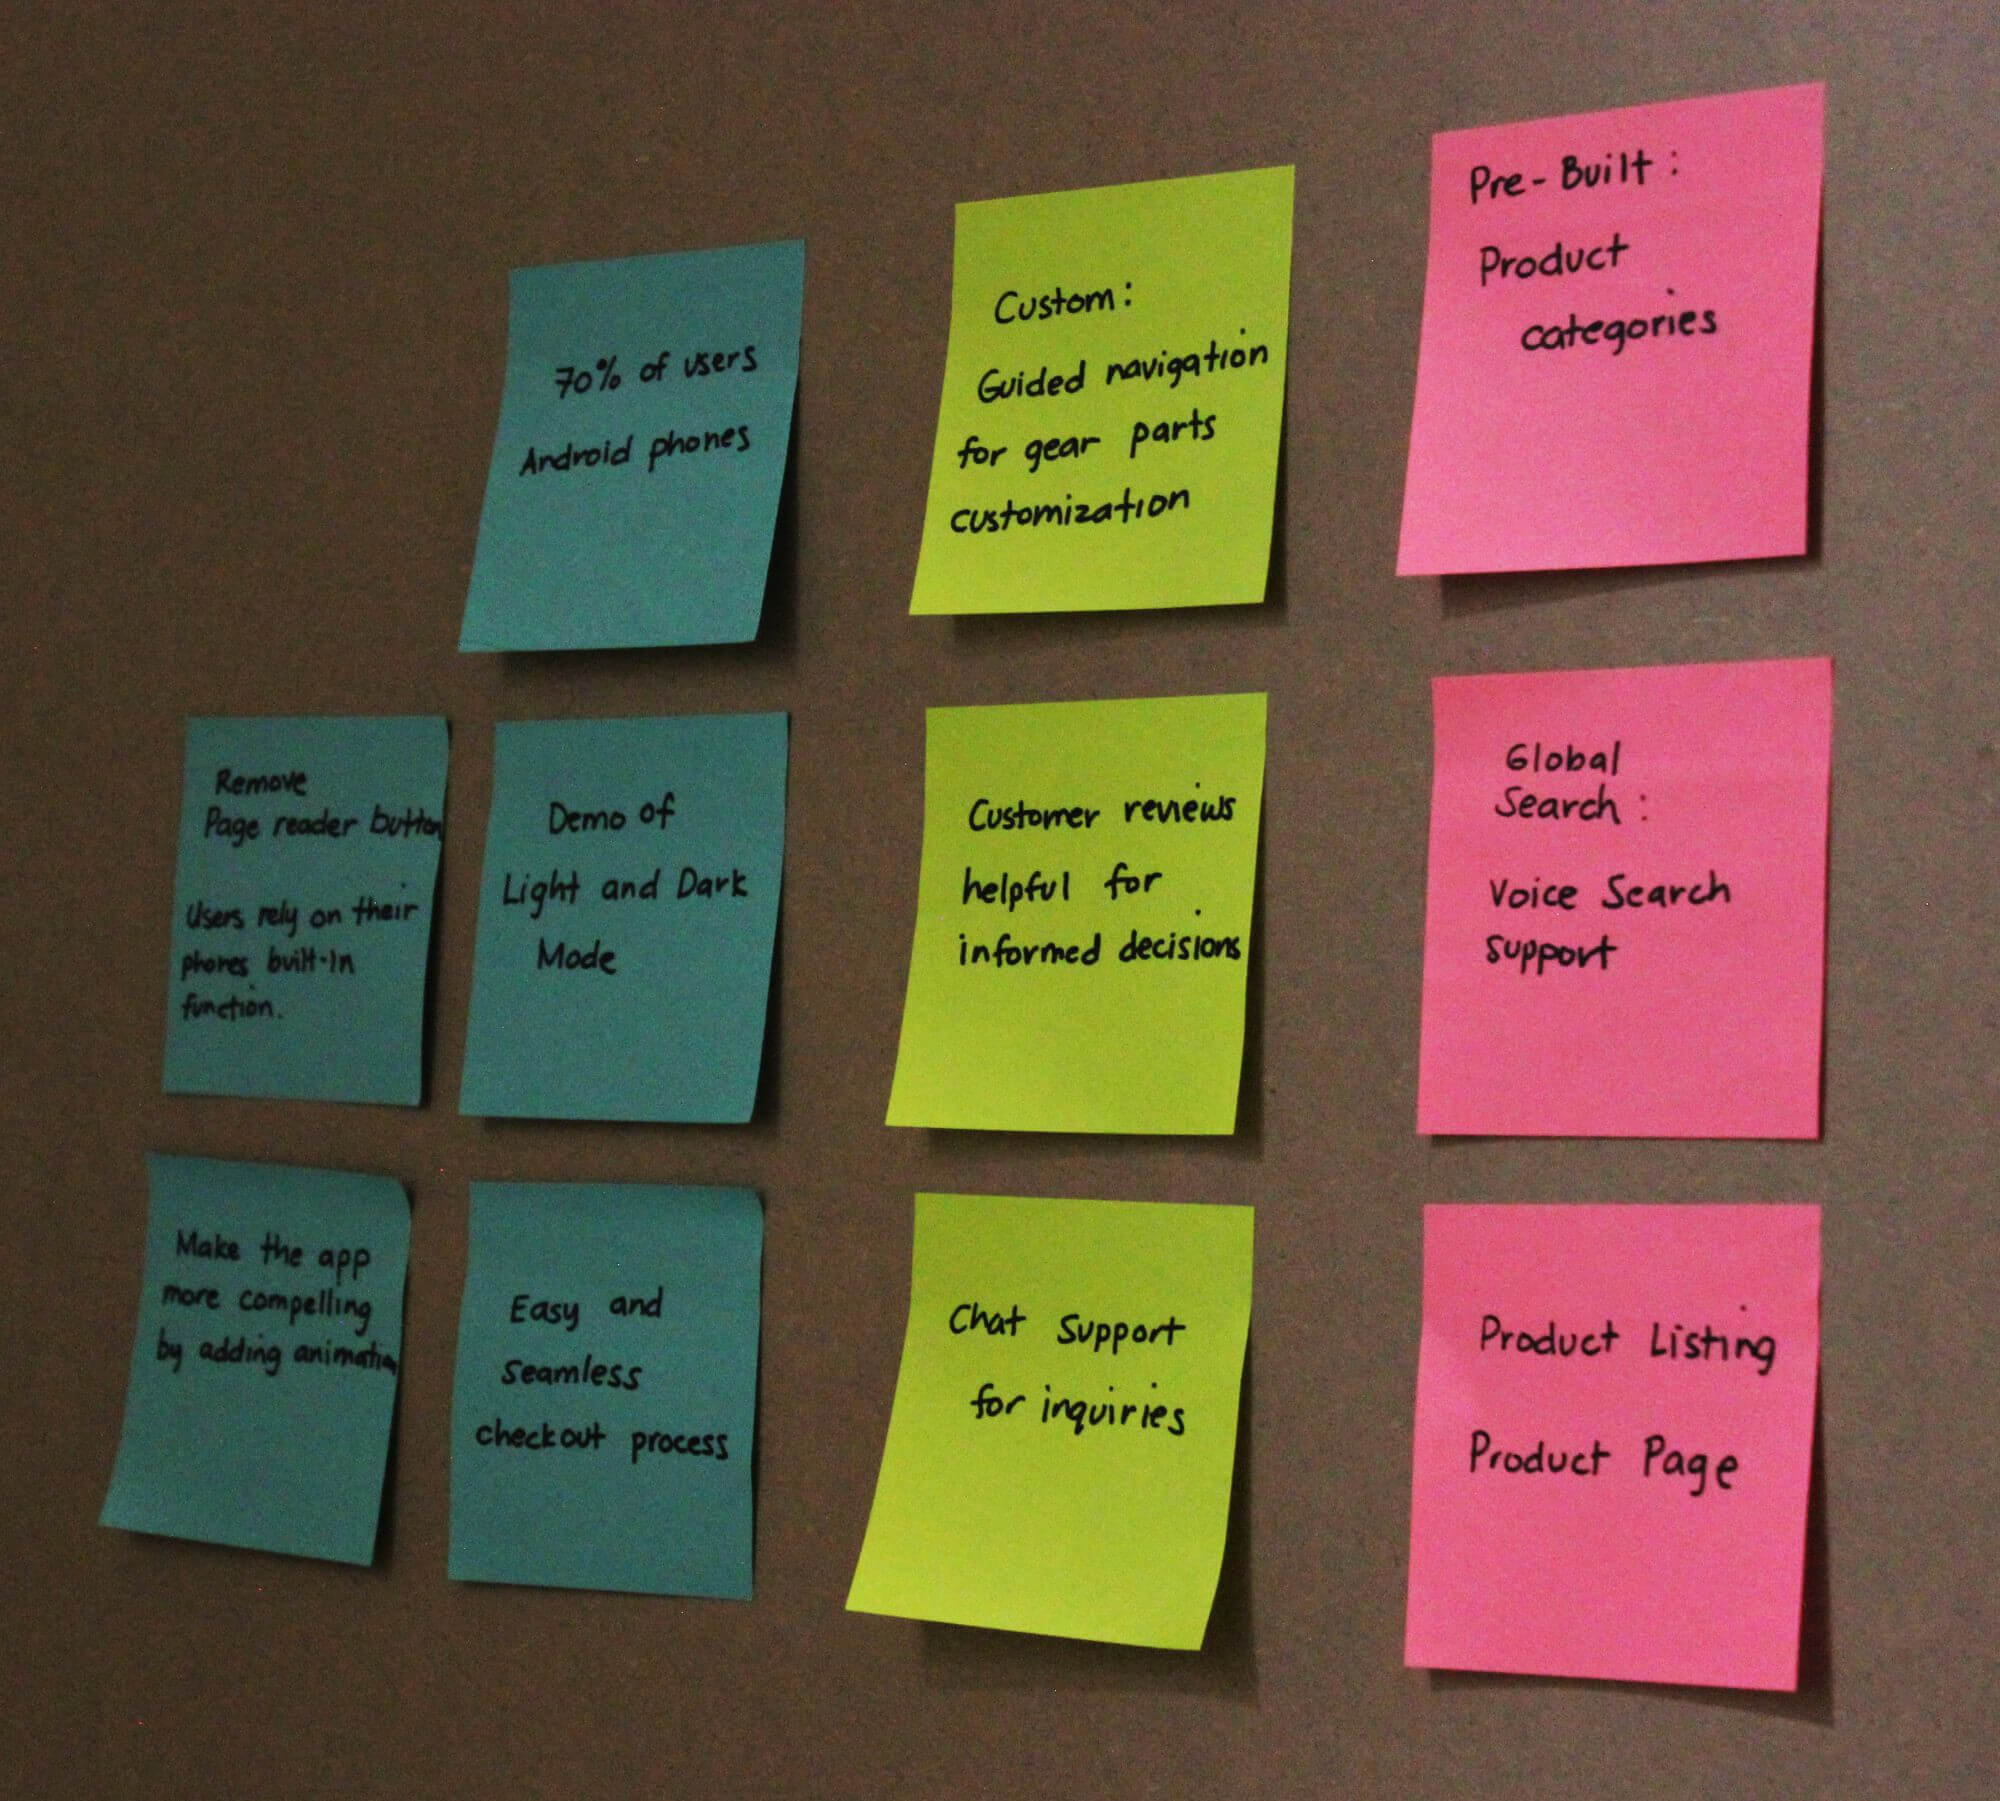 70% of users
Android phones
Custom:
Guided navigation
for gear parts
customization
Pre-Built:
Product
categories
Remove
Page reader button
Users rely on their
phones built-in
function.
Demo of
Light and Dark
Mode
Customer reviews
helpful for
informed decisions
Global
Search:
Voice Search
support
Make the app
more compelling
by adding animation
Easy and
seamless
checkout process
Chat Support
for inquiries
Product Listing
Product Page